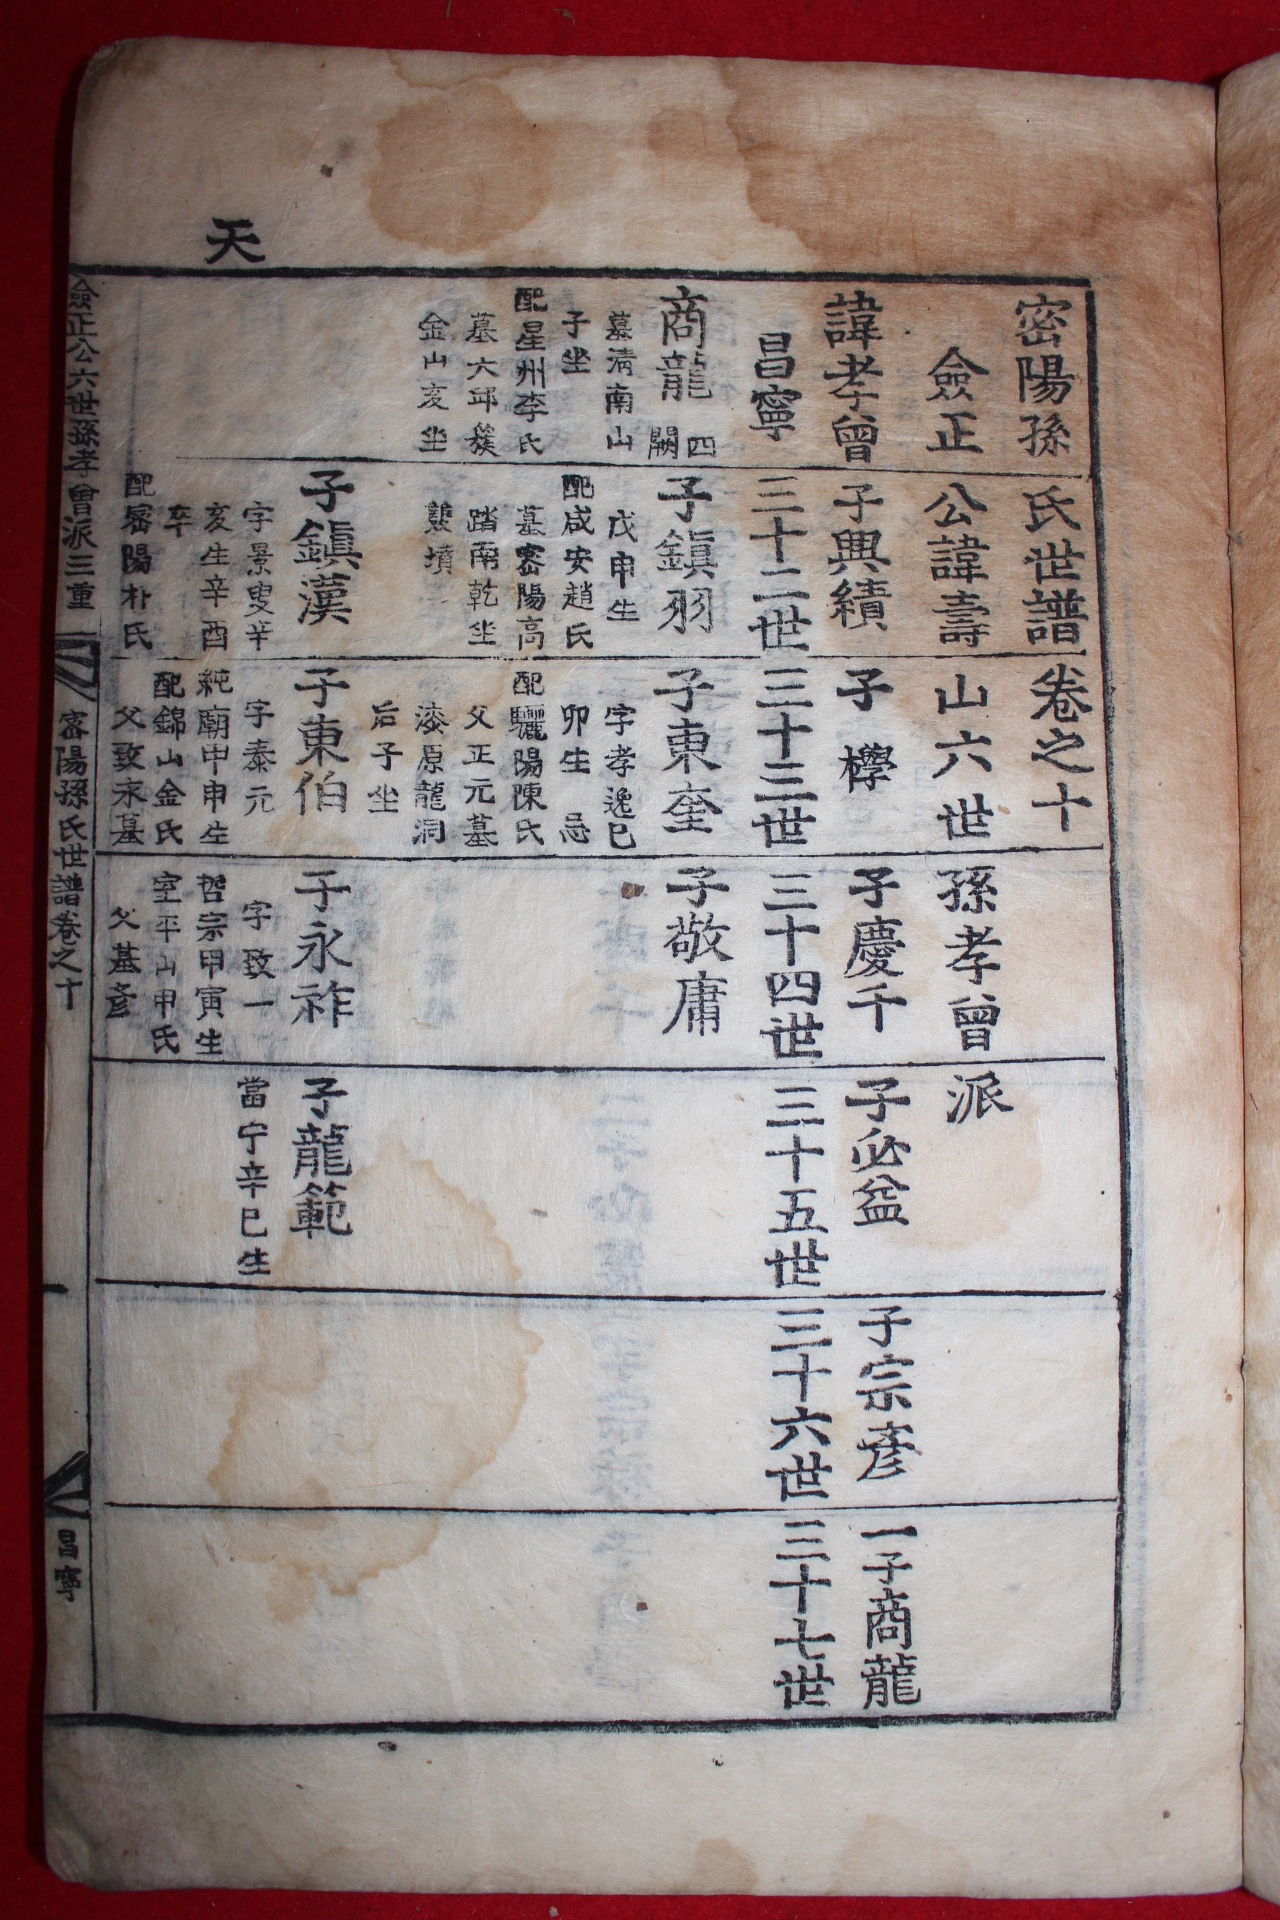 天
密陽孫氏世譜卷之十
僉正公諱壽山六世孫孝曾派
諱孝曾 子興績 子㰒 子慶千 子必益 子宗彥 一子商龍
昌寧 三十二世 三十三世 三十四世 三十五世 三十六世 三十七世
商龍
四
闕
墓淸南山
子坐
配星州李氏
墓大邱簇
金山亥坐
子鎭羽
戊申生
配咸安趙氏
墓密陽高
踏南乾坐
雙墳
子東奎
字孝逸巳
卯生 忌
配驪陽陳氏
父正元墓
漆原龍洞
后子坐
子敬庸
子鎭漢
字景叟辛
亥生辛酉
卒
配密陽朴氏
子東伯
字泰元
純廟甲申生
配錦山金氏
父致永墓
子永祚
字致一
哲宗甲寅生
室平山申氏
父基彥
子龍範
當宁辛巳生
僉正公六世孫孝曾派三重
密陽孫氏世譜卷之十
一
昌寧